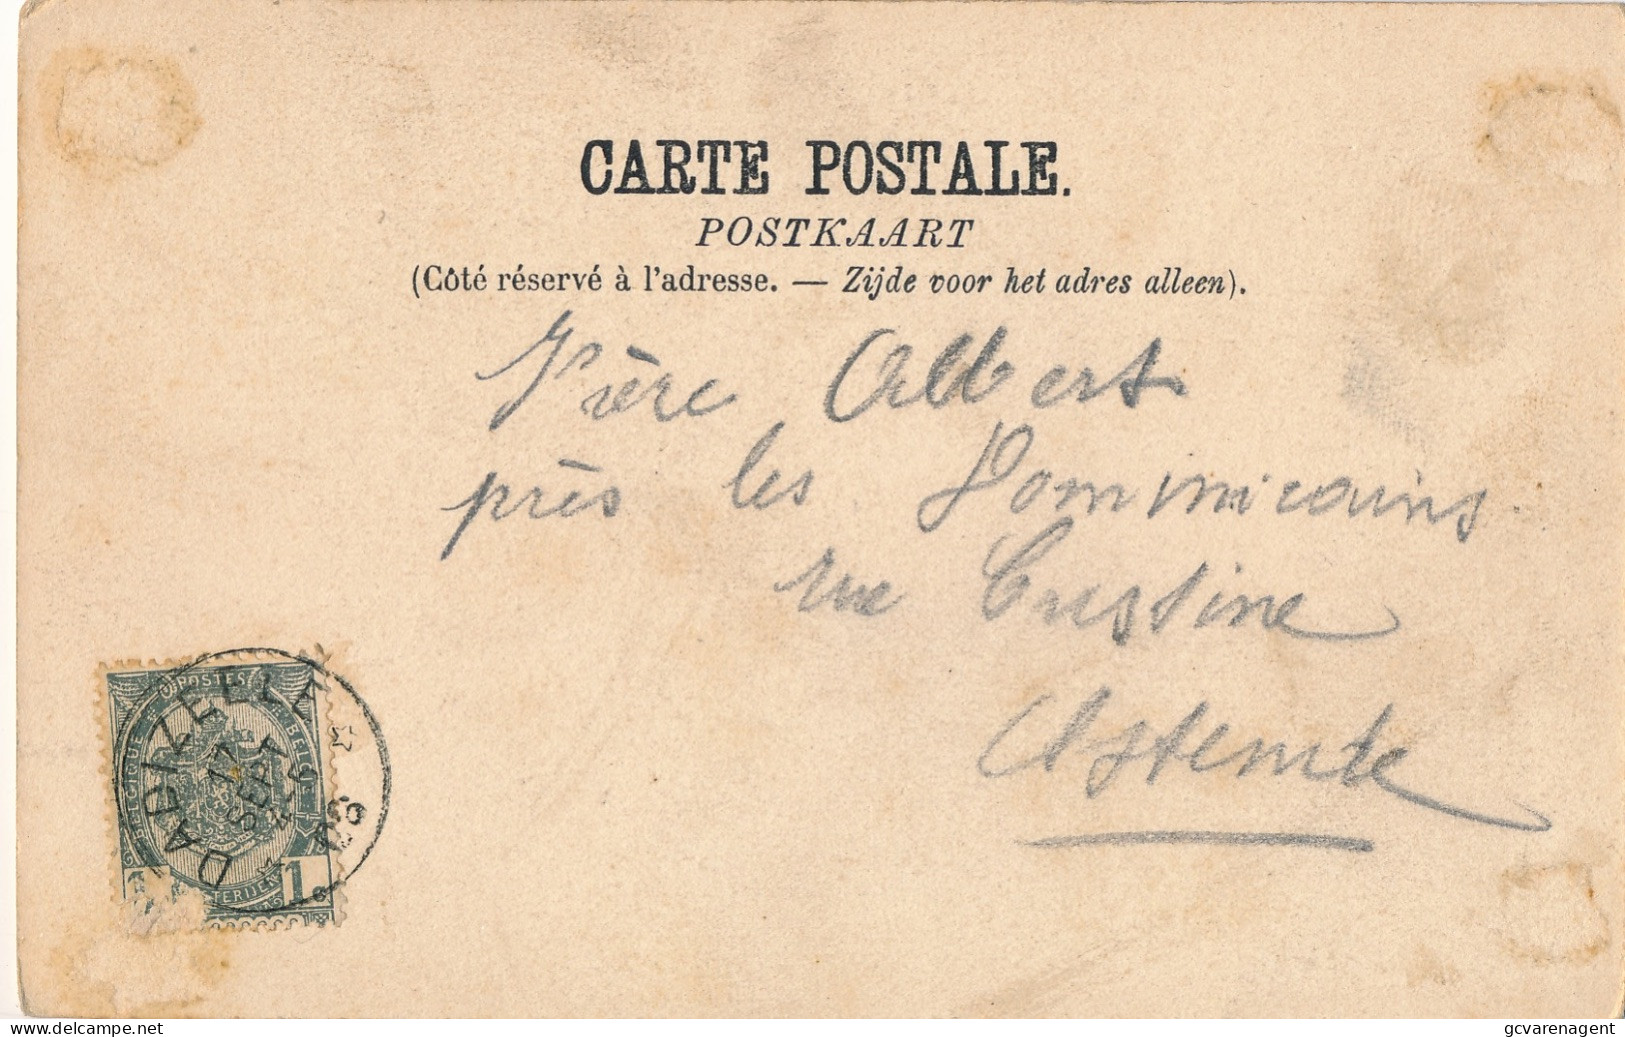 CARTE POSTALE.
POSTKAART
(Côté réservé à l'adresse. — Zijde voor het adres alleen).
Frère Albert
près les Dommicains
rue Cristine
Ostende
POSTES
BELGIQUE BELGIE
1
DADIZEELE
17
SEPT
website: delcampe.net
gcvarenagent